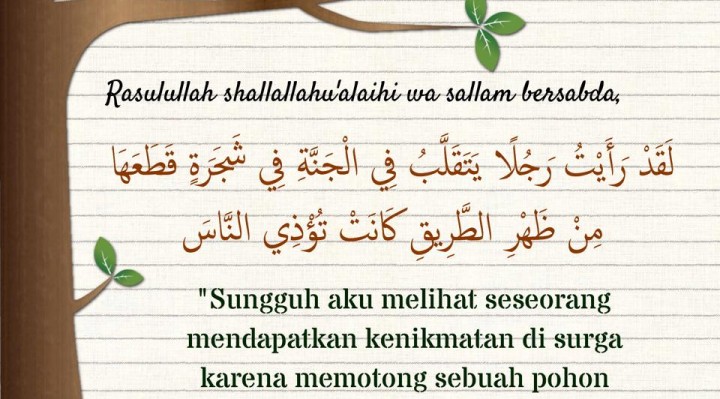 Rasulullah shallallahu'alaihi wa sallam bersabda,
لَقَدْ رَأَيْتُ رَجُلًا يَتَقَلَّبُ فِي الْجَنَّةِ فِي شَجَرَةٍ قَطَعَهَا
مِنْ ظَهْرِ الطَّرِيقِ كَانَتْ تُؤْذِي النَّاسَ
"Sungguh aku melihat seseorang
mendapatkan kenikmatan di surga
karena memotong sebuah pohon